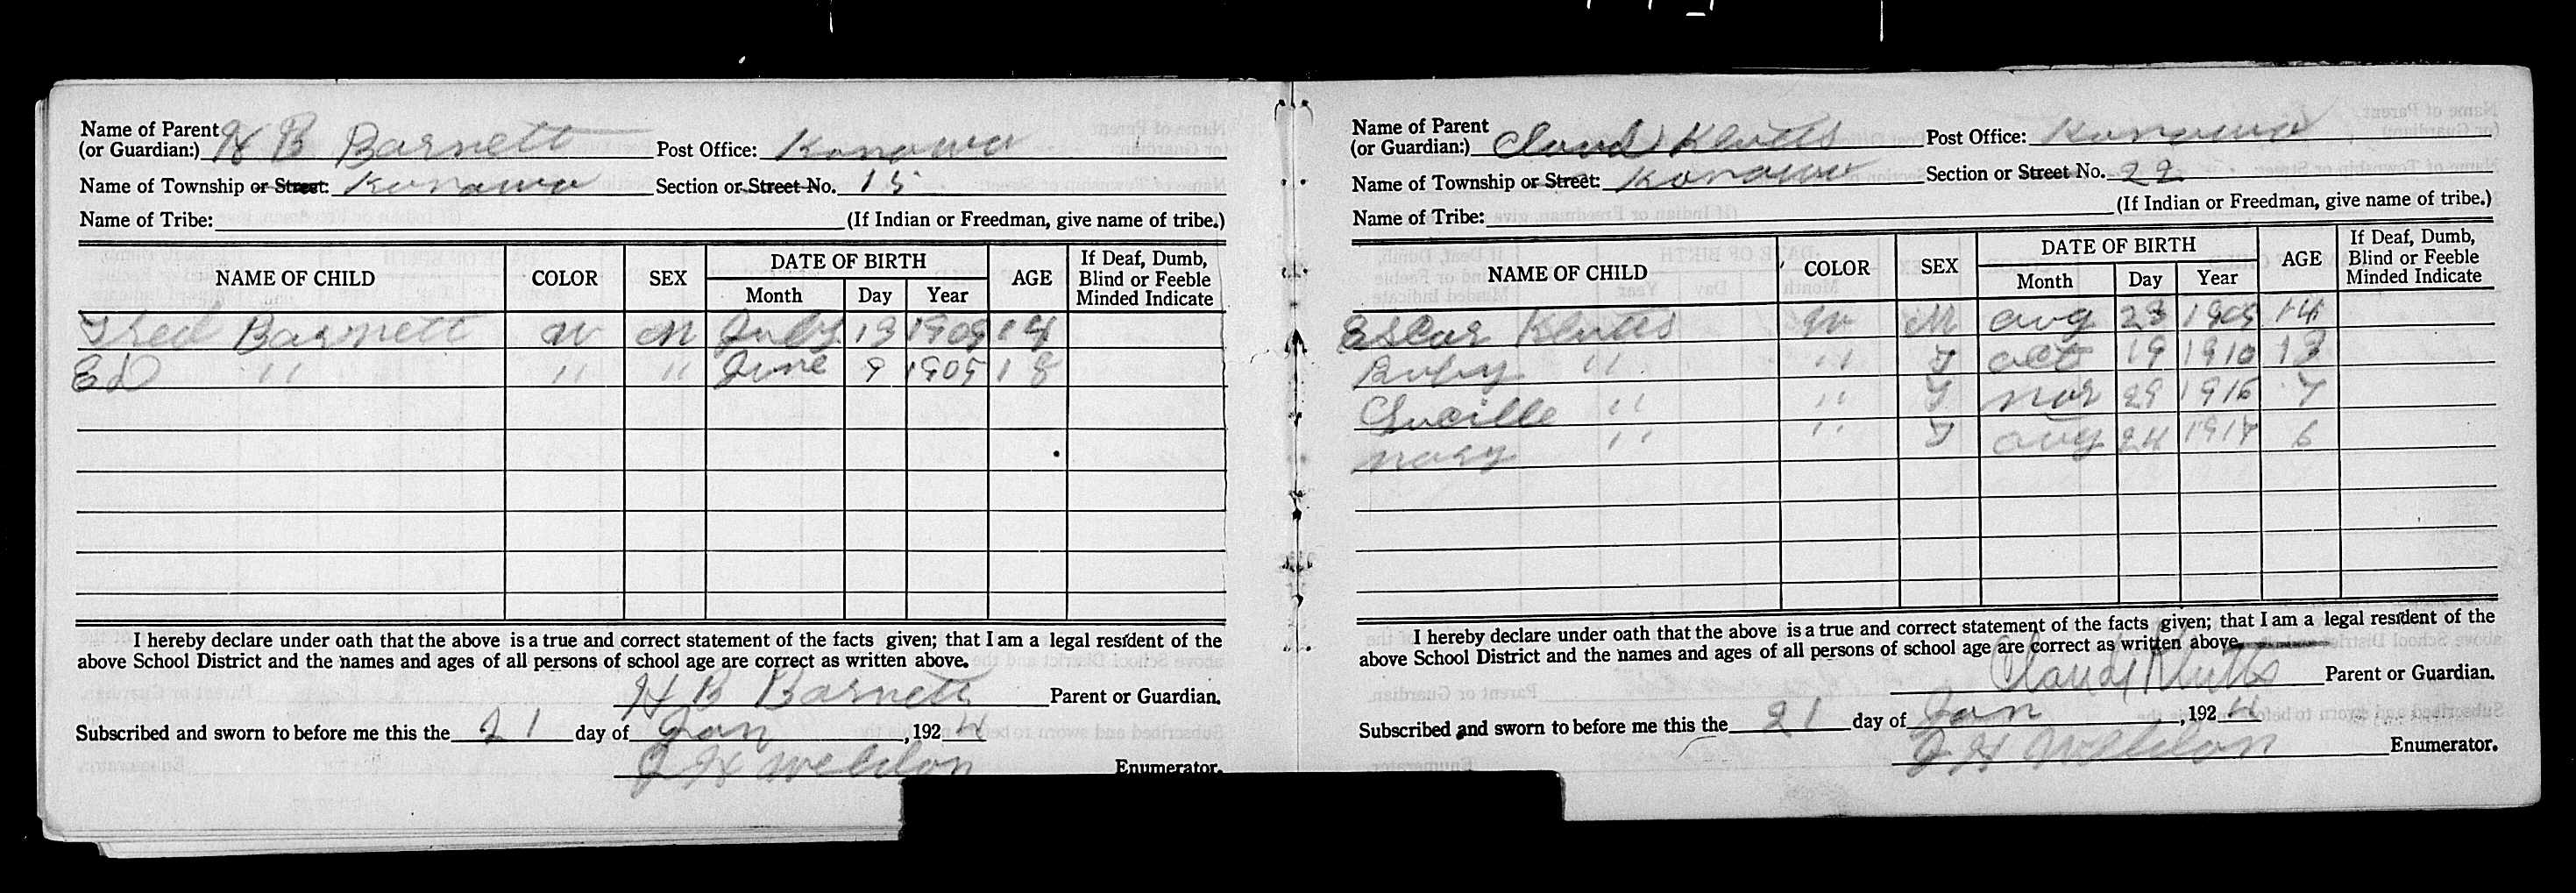 Name of Parent
(or Guardian:) H B Barnett Post Office: Konawa
Name of Township or Street: Konawa Section or Street No. 15
Name of Tribe: (If Indian or Freedman, give name of tribe.)
NAME OF CHILD COLOR SEX DATE OF BIRTH AGE If Deaf, Dumb, Blind or Feeble Minded Indicate
Month Day Year
Fred Barnett W M July 13 1909 14
ED " " " June 9 1905 18
I hereby declare under oath that the above is a true and correct statement of the facts given; that I am a legal resident of the
above School District and the names and ages of all persons of school age are correct as written above.
H B Barnett Parent or Guardian.
Subscribed and sworn to before me this the 21 day of Jan, 1924
J H Weldon Enumerator.
Name of Parent
(or Guardian:) Claud Klutts Post Office: Konawa
Name of Township or Street: Konawa Section or Street No. 22
Name of Tribe: (If Indian or Freedman, give name of tribe.)
NAME OF CHILD COLOR SEX DATE OF BIRTH AGE If Deaf, Dumb, Blind or Feeble Minded Indicate
Month Day Year
Klutts W M Aug 23 14
Ruby " " F Oct 19 1910 13
Lucille " " F Nov 29 1916 7
" " F Aug 24 1917 6
I hereby declare under oath that the above is a true and correct statement of the facts given; that I am a legal resident of the
above School District and the names and ages of all persons of school age are correct as written above.
Claud Klutts Parent or Guardian.
Subscribed and sworn to before me this the 21 day of Jan, 1924
J H Weldon Enumerator.